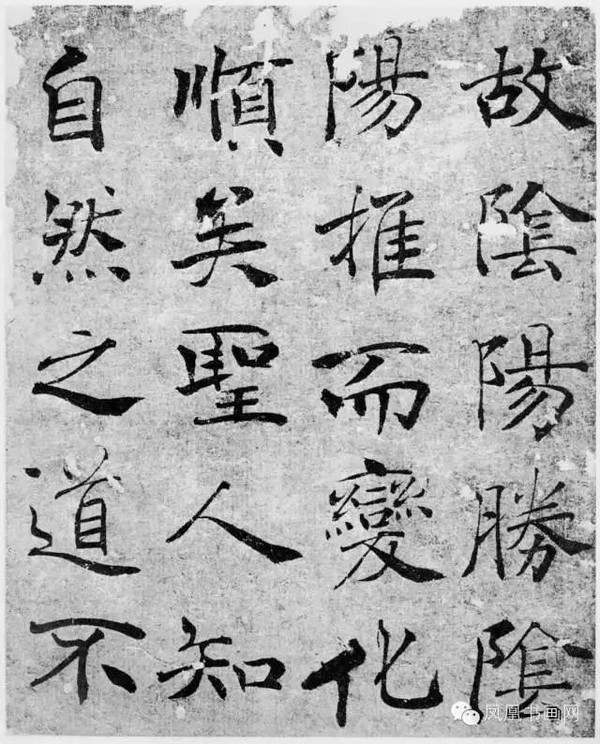 故陰陽勝陰
陽推而變化
順矣聖人知
自然之道不
凤凰书画网